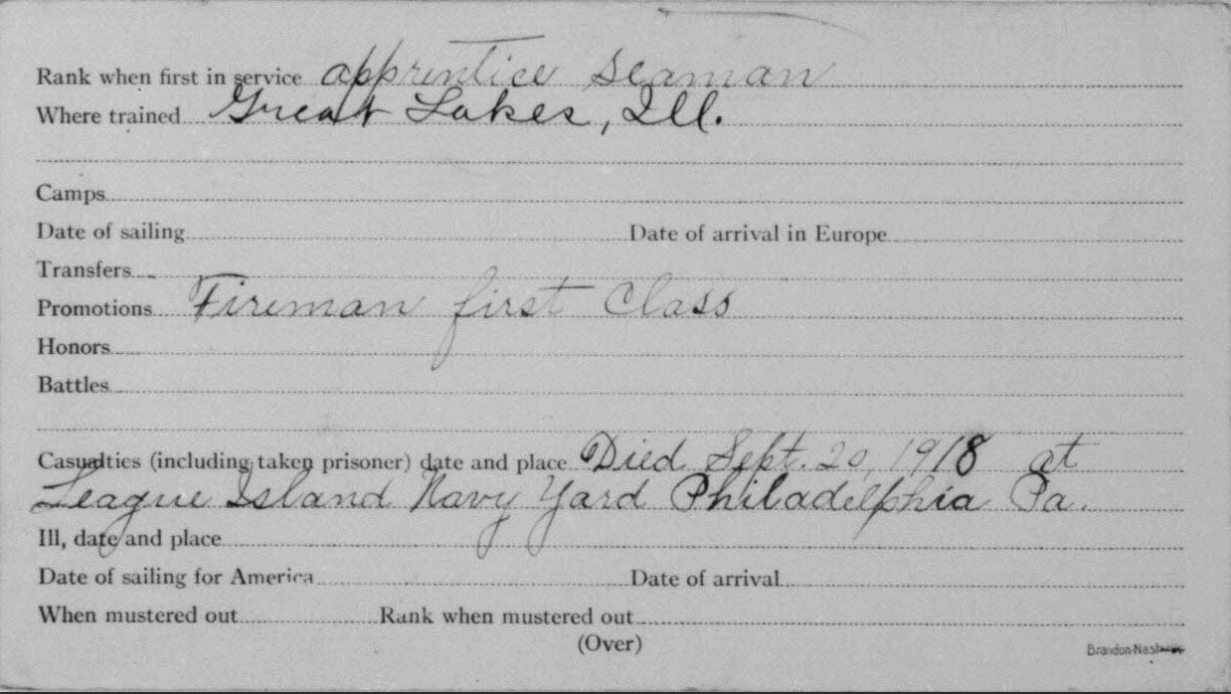 Rank when first in service apprentice seaman
Where trained Great Lakes, Ill.
Camps
Date of sailing Date of arrival in Europe
Transfers
Promotions Fireman first Class
Honors
Battles
Casualties (including taken prisoner) date and place Died Sept. 20, 1918 at
League Island Navy Yard Philadelphia Pa.
Ill, date and place
Date of sailing for America Date of arrival
When mustered out Rank when mustered out
(Over)